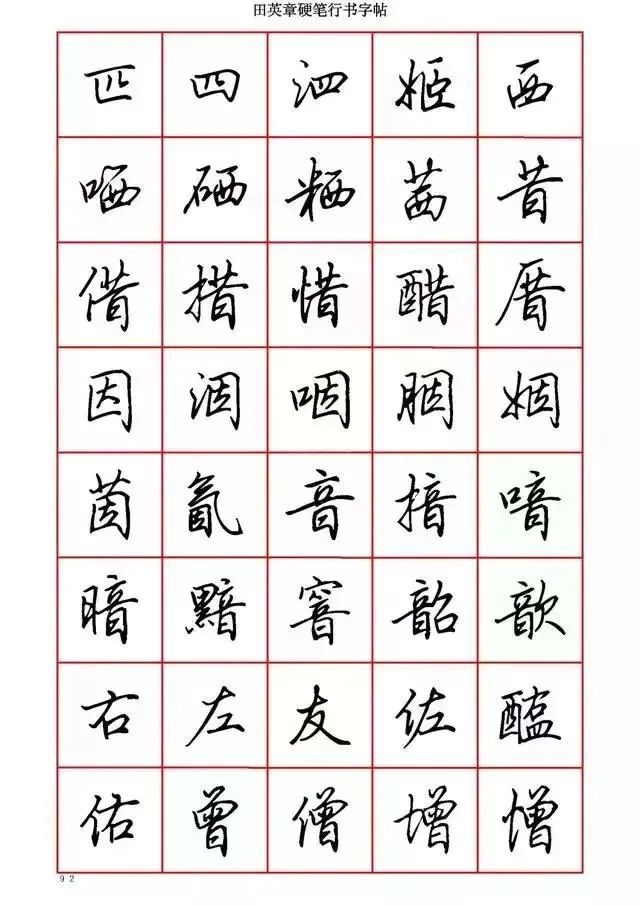 田英章硬笔行书字帖
匹四泗姬西
哂硒粞茜昔
借措惜醋厝
因洇咽胭姻
茵氤音揞喑
暗黯窨韶歆
右左友佐醢
佑曾僧增憎
92